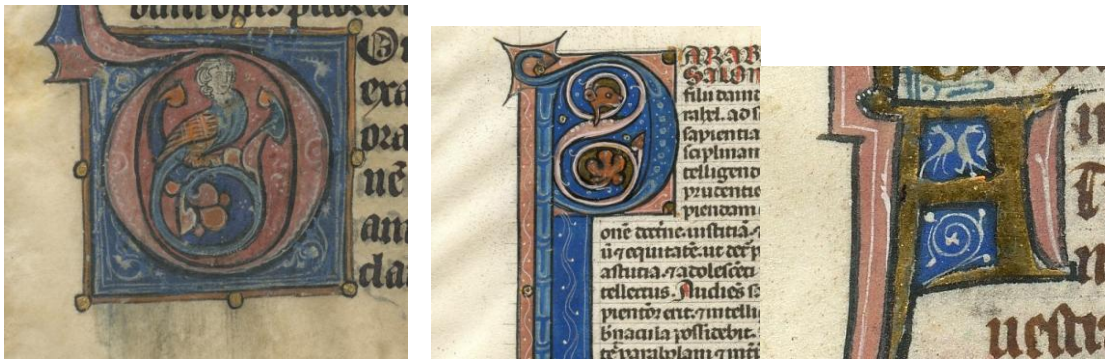 D
exa
ora
nē
am
cla
P
ARAB
SALOM
filii dauid
rahel. ad s
sapientia
sciplinam
telligend
prudentie
piendam
onē doctrine. iusticiā. ⁊
ū ⁊ equitatē. ut det p
astutia. ⁊ adolescēti
tellectus. Audiēs sa
pientior erit. ⁊ intelli
bnacula possidebit.
te parabolam ⁊ int
A
uestr